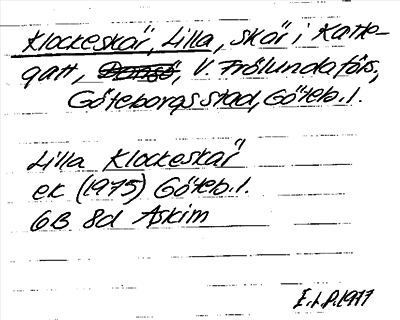 Klockeskär, Lilla, skär i Katte-
gatt, V. Frölunda förs.,
Göteborgs stad, Göteb. l.
Lilla Klockeskär
ek (1975) Göteb. l.
6B 8d Askim
E.L.P. 1977